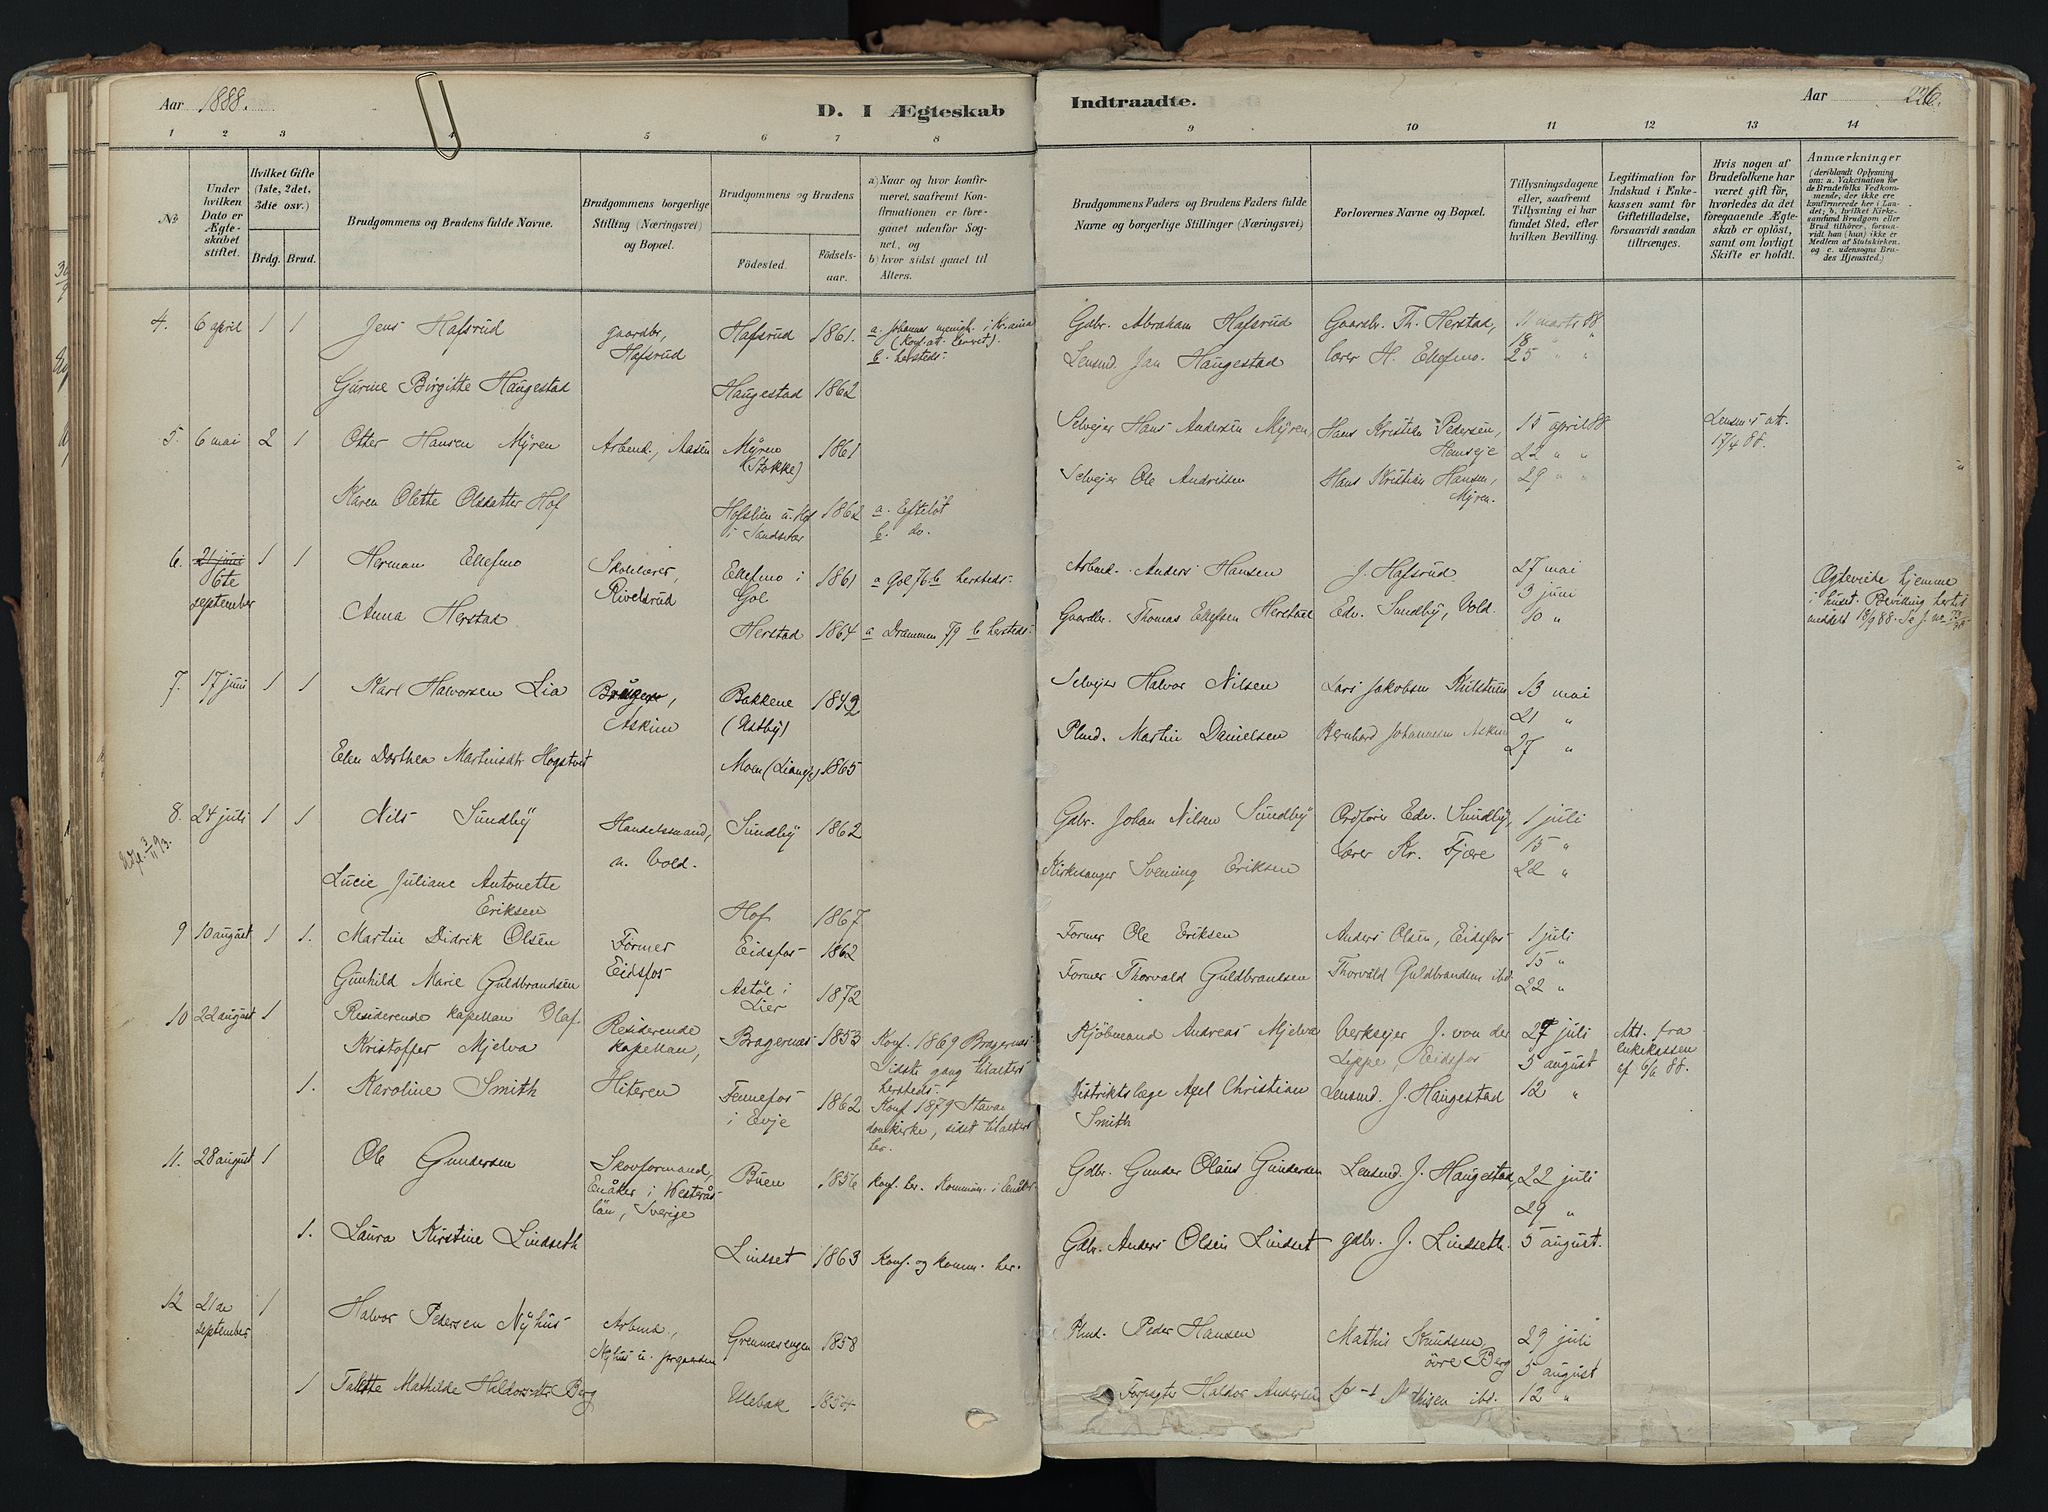 Aar 1888.
D. I Ægteskab
Indtraadte.
Aar 226.
1 2 3 4 5 6 7 8 9 10 11 12 13 14
№
Under hvilken Dato er Ægteskabet stiftet.
Hvilket Gifte (1ste, 2det, 3die osv.)
Brdg. Brud.
Brudgommens og Brudens fulde Navne.
Brudgommens borgerlige Stilling (Næringsvei) og Bopæl.
Brudgommens og Brudens
Fødested.
Fødselsaar.
a) Naar og hvor konfirmeret, saafremt Konfirmationen er foregaaet udenfor Sognet, og
b) hvor sidst gaaet til Alters.
Brudgommens Faders og Brudens Faders fulde Navne og borgerlige Stillinger (Næringsvei)
Forlovernes Navne og Bopæl.
Tillysningsdagene eller, saafremt Tillysning ei har fundet Sted, efter hvilken Bevilling.
Legitimation for Indskud i Enkekassen samt for Giftetilladelse, forsaavidt saadan tiltrænges.
Hvis nogen af Brudefolkene har været gift før, hvorledes da det foregaaende Ægteskab er opløst, samt om lovligt Skifte er holdt.
Anmærkninger (deriblandt Oplysning om: a. Vakcination for de Brudefolks Vedkommende, der ikke ere konfirmerede her i Landet; b. hvilket Kirkesamfund Brudgom eller Brud tilhører, forsaavidt han (hun) ikke er Medlem af Statskirken, og c. udensogns Brudes Hjemsted.)
4. 6 april 1 1 Jens Hafsrud gaardbr, Hafsrud Hafsrud 1861. a. Johannes menigh. i Kr.ania (Konf. at. levret). b. hersteds. Gdbr. Abraham Hafsrud Gaardbr. Th. Herstad, 11 marts 88
Lensmd. Jan Haugestad Lærer H. Ellefmo. 18 " " 25 " "
Gurine Birgitte Haugestad Haugestad 1862
5. 6 mai 2 1 Otter Hansen Myren Arbmd., Aasen Myren (Stokke) 1861 Selvejer Hans Andersen Myren, Hans Kristian Pedersen, Hemseje 15 april 88 Lensm's att. 17/4 88.
22 " "
Karen Olette Olsdatter Hof Hofslien u. Hof i Sandsvær 1862 a. Efteløt b. do. Selvejer Ole Andersen Hans Kristian Hansen, Myren. 29 " "
6. 21 juni 6te september 1 1 Herman Ellefmo Skolelærer, Rivelsrud Ellefmo i Gol 1861 a Gol 76 b hersteds. Arbmd. Anders Hansen J. Hafsrud 27 mai 3 juni Ægteviede hjemme i huset. Bevilling hertil meddelt
Anna Herstad Herstad 1864 a Drammen 79 b hersteds. Gaardbr. Thomas Ellefsen Herstad Edv. Sundby, Vold. 10 "
7. 17 juni 1 1 Karl Halvorsen Lia Askim Bakkene (Østby) 1842 Selvejer Halvor Nilsen Lars Jakobsen 13 mai
21 "
Elen Dorthea Martinsdtr Hogstvet Moen (Liaeje) 1865 Plmd. Martin Danielsen Bernhard Johannesen Askim 27 "
8. 24 juli 1 1 Nils Sundby Handelsmand, n. Vold. Sundby 1862 Gdbr. Johan Nilsen Sundby Ordfører Edv. Sundby, 1 juli
15 "
Lucie Juliane Antonette Eriksen Hof 1867 Kirkesanger Svening Eriksen Lærer Kr. Fjære 22 "
9 10 august 1 1. Martin Didrik Olsen Former Eidsfos Eidsfos 1862 Former Ole Eriksen Anders Olsen, Eidsfos 1 juli
15 "
Gunhild Marie Guldbrandsen Astøl i Lier 1872 Former Thorvald Guldbrandsen Thorvald Guldbrandsen ibd. 22 "
10 22 august 1 Residerende kapellan Olaf Kristoffer Mjelva Residerende kapellan, Hiteren Bragernes 1853 Konf. 1869 Bragernes Sidste gang tilalters hersteds. Kjøbmand Andreas Mjelva Verksejer J. von der Lippe, Eidsfos 29 juli 5 august Att. fra enkekassen af 6/6 88.
1. Karoline Smith Fennefos i Evje 1862 Konf. 1879 Stava. domkirke, sidst tilalters her. Distriktslæge Axel Christian Smith Lensmd. J. Haugestad 12 "
11. 28 august 1 Ole Gundersen Skovformand, Enåker i Westerås län, Sverige Buen 1856 Konf. her. Kommun. i Enåker Gdbr. Gunder Olaus Gundersen Lensmd. J. Haugestad, 22 juli
29 "
1. Laura Kirstine Lindseth Lindset 1863 Konf. og komm. her. Gdbr. Anders Olsen Lindset gdbr. J. Lindseth. 5 august.
12 21de september 1 Halvor Pedersen Nyhus Arbmd., Nyhus u. Grennesengen 1858 Plmd. Peder Hansen Mathis Knudsen øvre Berg 29 juli 5 august
1 Talette Mathilde Haldorsdtr Berg Ulebak 1854 Forpagter Haldor Andersen ibd. 12 "